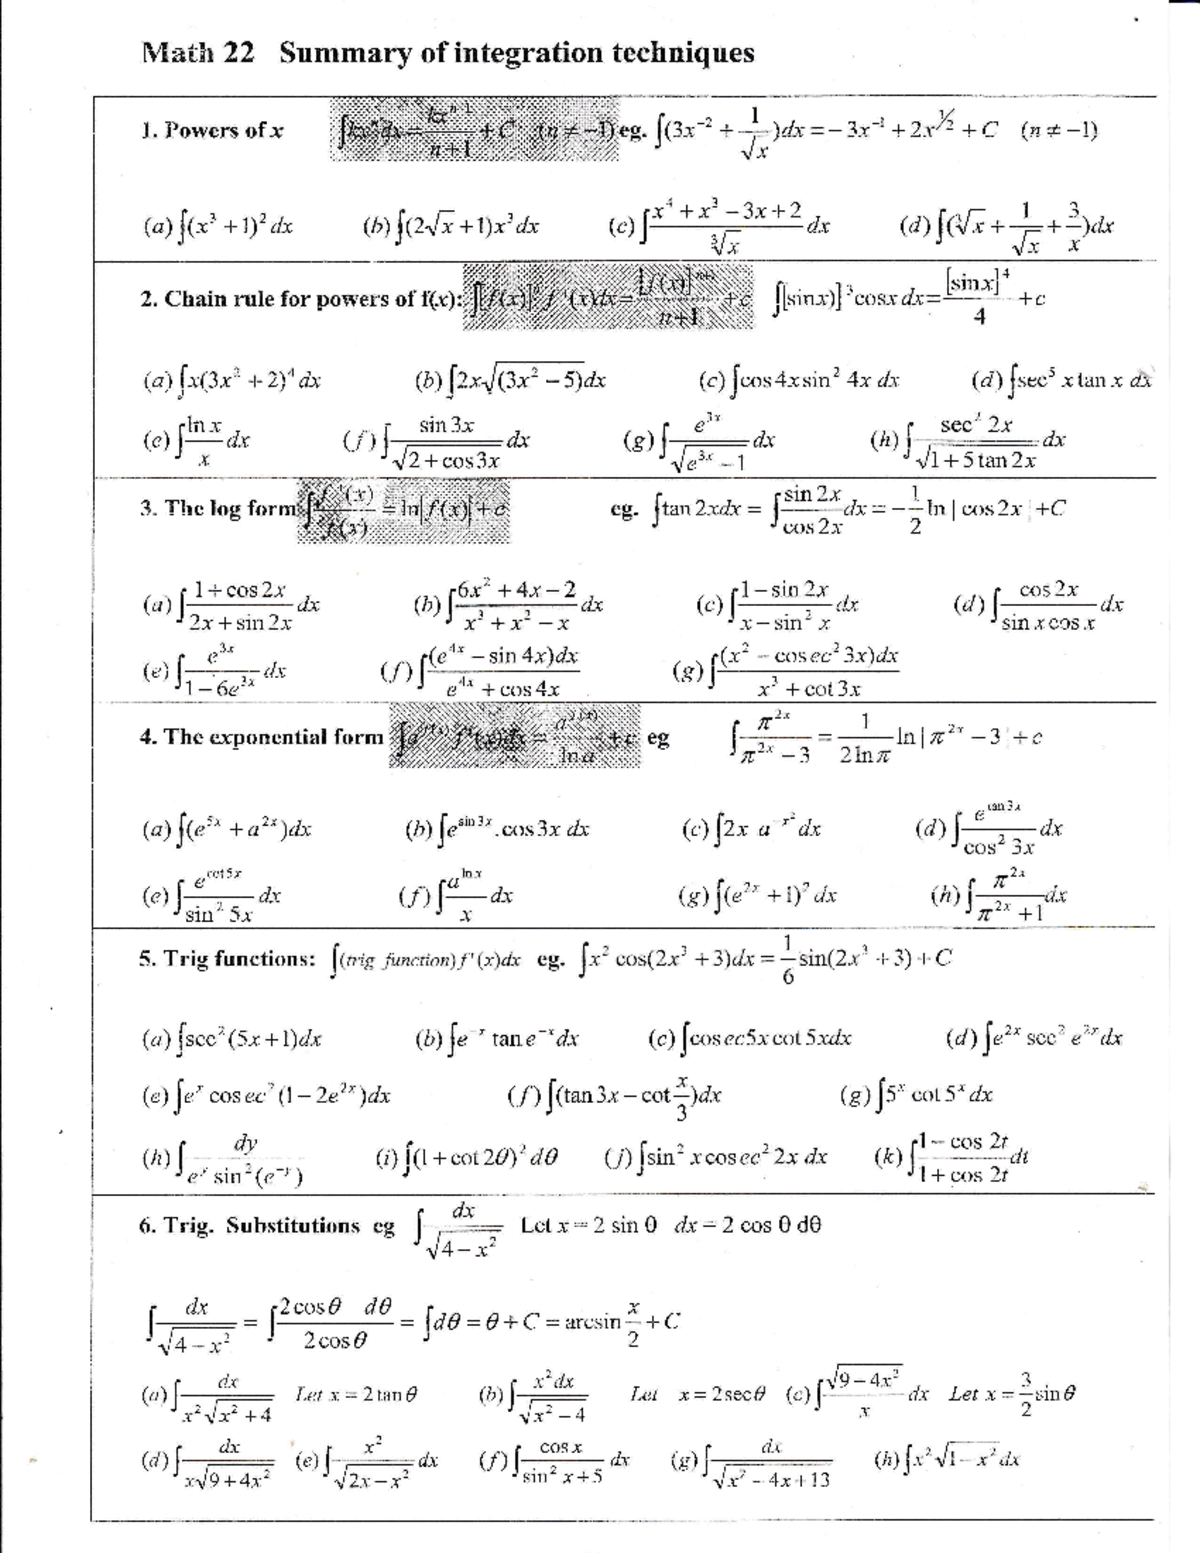 Math 22 Summary of integration techniques
1. Powers of x ∫kxⁿdx = kxⁿ⁺¹/(n+1) + C (n ≠ −1) eg. ∫(3x⁻² + 1/√x)dx = −3x⁻¹ + 2x^½ + C (n ≠ −1)
(a) ∫(x³ + 1)² dx (b) ∫(2√x + 1)x³ dx (c) ∫(x⁴ + x³ − 3x + 2)/∛x dx (d) ∫(∛x + 1/√x + 3/x)dx
2. Chain rule for powers of f(x): ∫[f(x)]ⁿ f'(x)dx = [f(x)]ⁿ⁺¹/(n+1) + c ∫[sinx)]³cosx dx = [sinx]⁴/4 + c
(a) ∫x(3x² + 2)⁴ dx (b) ∫2x√(3x² − 5)dx (c) ∫cos4x sin² 4x dx (d) ∫sec⁵ x tan x dx
(e) ∫ln x/x dx (f) ∫sin 3x/√(2 + cos3x) dx (g) ∫e^{3x}/√(e^{3x} − 1) dx (h) ∫sec² 2x/√(1 + 5 tan 2x) dx
3. The log form ∫f'(x)/f(x) = ln|f(x)| + c eg. ∫tan 2xdx = ∫sin 2x/cos 2x dx = −1/2 ln | cos2x | +C
(a) ∫(1 + cos 2x)/(2x + sin 2x) dx (b) ∫(6x² + 4x − 2)/(x³ + x² − x) dx (c) ∫(1 − sin 2x)/(x − sin² x) dx (d) ∫cos 2x/(sin x cos x) dx
(e) ∫e^{3x}/(1 − 6e^{3x}) dx (f) ∫(e^{4x} − sin 4x)dx/(e^{4x} + cos 4x) (g) ∫(x² − cosec² 3x)dx/(x³ + cot 3x)
4. The exponential form ∫a^{f(x)} f'(x)dx = a^{f(x)}/ln a + c eg ∫π^{2x}/(π^{2x} − 3) = 1/(2 ln π) ln | π^{2x} − 3 | + c
(a) ∫(e^{5x} + a^{2x})dx (b) ∫e^{sin 3x}.cos3x dx (c) ∫2x a^{−x²} dx (d) ∫e^{tan 3x}/cos² 3x dx
(e) ∫e^{cot 5x}/sin² 5x dx (f) ∫a^{ln x}/x dx (g) ∫(e^{2x} + 1)² dx (h) ∫π^{2x}/(π^{2x} + 1) dx
5. Trig functions: ∫(trig function)f'(x)dx eg. ∫x² cos(2x³ + 3)dx = 1/6 sin(2x³ + 3) + C
(a) ∫sec²(5x + 1)dx (b) ∫e^{−x} tan e^{−x} dx (c) ∫cosec5x cot 5xdx (d) ∫e^{2x} sec² e^{2x} dx
(e) ∫eˣ cosec² (1 − 2e^{2x})dx (f) ∫(tan 3x − cot x/3)dx (g) ∫5ˣ cot 5ˣ dx
(h) ∫dy/(e^y sin²(e^{−y})) (i) ∫(1 + cot 2θ)² dθ (j) ∫sin² x cosec² 2x dx (k) ∫(1 − cos 2t)/(1 + cos 2t) dt
6. Trig. Substitutions eg ∫dx/√(4 − x²) Let x = 2 sin θ dx = 2 cos θ dθ
∫dx/√(4 − x²) = ∫2cosθ dθ/2cosθ = ∫dθ = θ + C = arcsin x/2 + C
(a) ∫dx/(x²√(x² + 4)) Let x = 2 tan θ (b) ∫x² dx/√(x² − 4) Let x = 2secθ (c) ∫√(9 − 4x²)/x dx Let x = 3/2 sin θ
(d) ∫dx/(x√(9 + 4x²)) (e) ∫x²/√(2x − x²) dx (f) ∫cos x/(sin² x + 5) dx (g) ∫dx/√(x² − 4x + 13) (h) ∫x²√(1 − x²) dx